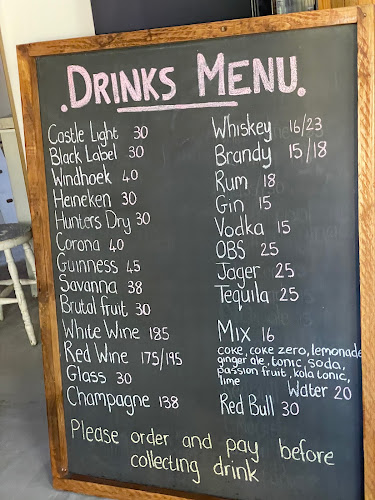 .DRINKS MENU.
Castle Light 30
Black Label 30
Windhoek 40
Heineken 30
Hunters Dry 30
Corona 40
Guinness 45
Savanna 38
Brutal fruit 30
White Wine 185
Red Wine 175/195
Glass 30
Champagne 138
Whiskey 16/23
Brandy 15/18
Rum 18
Gin 15
Vodka 15
OBS 25
Jager 25
Tequila 25
Mix 16
coke, coke zero, lemonade
ginger ale, tonic, soda,
passion fruit, kola tonic,
lime
Water 20
Red Bull 30
Please order and pay before
collecting drink